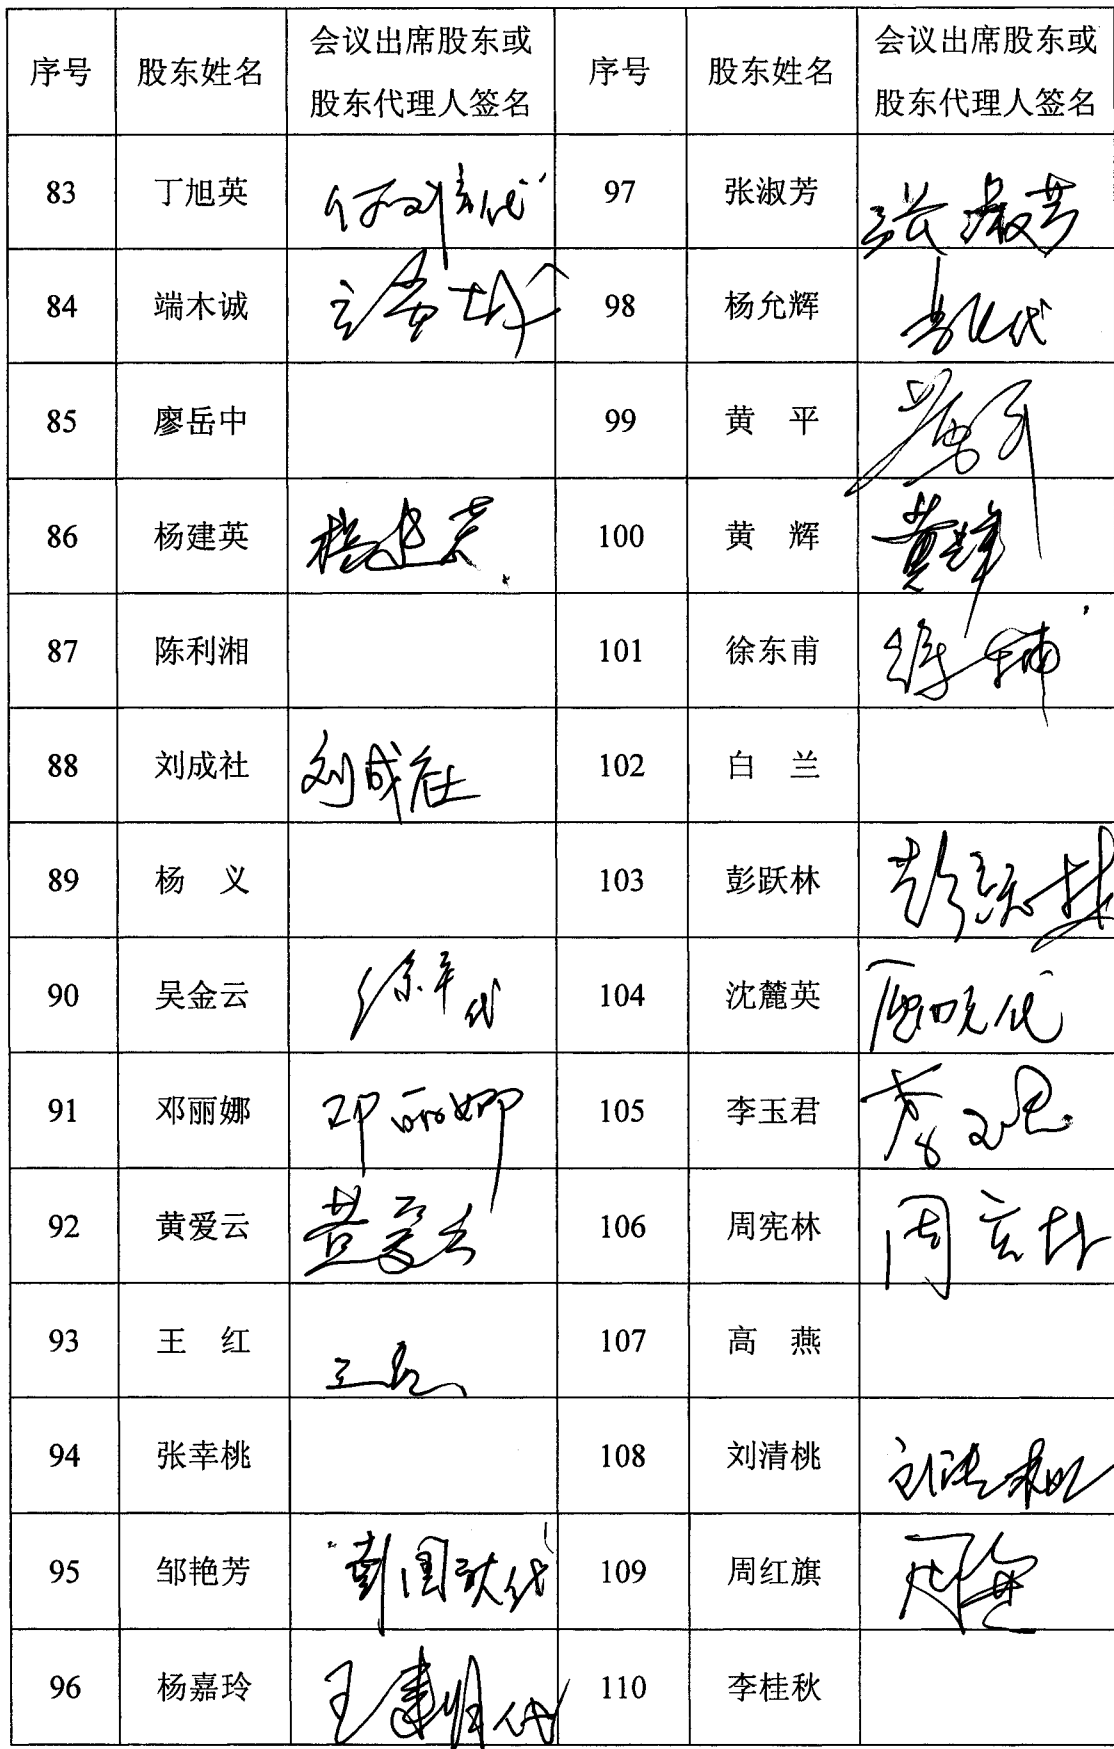 序号 股东姓名 会议出席股东或股东代理人签名 序号 股东姓名 会议出席股东或股东代理人签名
83 丁旭英 97 张淑芳 张淑芳
84 端木诚 98 杨允辉
85 廖岳中 99 黄 平
86 杨建英 杨建英 100 黄 辉 黄辉
87 陈利湘 101 徐东甫
88 刘成社 刘成社 102 白 兰
89 杨 义 103 彭跃林 彭跃林
90 吴金云 徐平代 104 沈麓英
91 邓丽娜 邓丽娜 105 李玉君
92 黄爱云 黄爱云 106 周宪林 周宪林
93 王 红 王红 107 高 燕
94 张幸桃 108 刘清桃 刘清桃
95 邹艳芳 109 周红旗
96 杨嘉玲 110 李桂秋